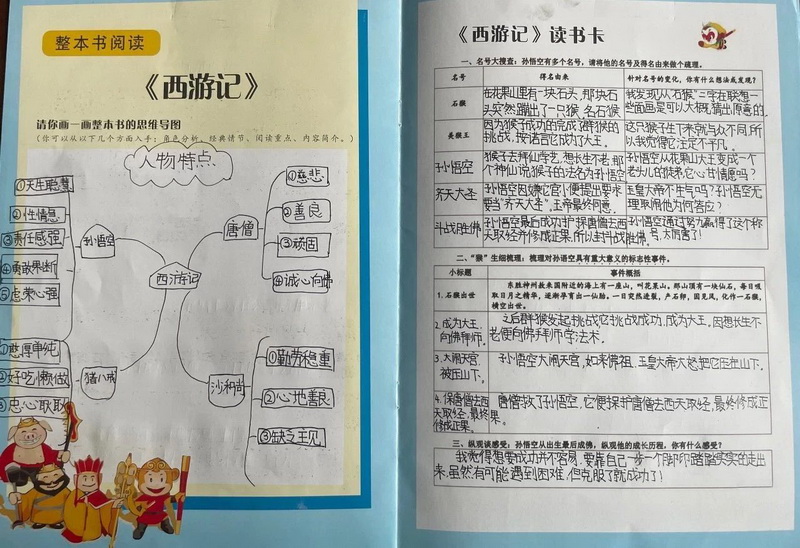 整本书阅读
《西游记》
请你画一画整本书的思维导图
(你可以从以下几个方面入手：角色分析、经典情节、阅读重点、内容简介。)
人物特点
①天生聪慧
②性情急
③责任感强
④勇敢果断
⑤虚荣心强
孙悟空
西游记
唐僧
①慈悲
②善良
③顽固
④诚心向佛
①憨厚单纯
②好吃懒做
③忠心耿耿
猪八戒
沙和尚
①勤劳稳重
②心地善良
③缺乏主见
《西游记》读书卡
一、名号大搜查：孙悟空有多个名号，请将他的名号及得名由来做个梳理。
名号
得名由来
针对名号的变化，你有什么想法或发现？
石猴
在花果山里有一块石头，那块石
头突然蹦出了一只猴，名石猴
我发现从“石猴”二字在联想一
些画面是可以大概猜出原意的。
美猴王
因为猴子成功的完成了群猴的
挑战，按诺言它成为了大王。
这只猴子生下来就与众不同，所
以我觉得它注定不平凡。
孙悟空
猴子去拜仙学艺，想长生不老，那
个神仙说猴子的法名为孙悟空
孙悟空从花果山大王变成一个
老头儿的徒弟，它心甘情愿吗？
齐天大圣
孙悟空因嫌官小便提出要求
要当“齐天大圣”。玉帝最终同意
玉皇大帝不生气吗？孙悟空无
理取闹他为何答应？
斗战胜佛
孙悟空最后成功护保唐僧去西
天取经并修成正果，所以封斗战胜佛
孙悟空通过努力赢得了这个称
号，太厉害了！
二、“猴”生细梳理：梳理对孙悟空具有重大意义的标志性事件。
小标题
事件概括
1.石猴出世
东胜神州敖来国附近的海上有一座山，叫花果山。那山顶有一块仙石，每日吸
取日月之精华，逐渐孕育出一仙胎。一日突然迸裂，产石卵，因见风，化作一石猴，
横空出世。
2.成为大王，
向佛拜师。
之后群猴发起挑战，它挑战成功，成为大王。因想长生不
老便向佛拜师学法术。
3.大闹天宫，
被压山下。
孙悟空大闹天宫，如来佛祖、玉皇大帝大怒把它压在山下。
4.保唐僧去西
天取经，最终
修成正果。
唐僧救了孙悟空，它便保护唐僧去西天取经，最终修成正
果。
三、纵观谈感受：孙悟空从出生最后成佛，纵观他的成长历程，你有什么感受？
我觉得想要成功并不容易，要靠自己一步一个脚印踏踏实实的走出
来，虽然有可能遇到困难，但克服了就成功了！